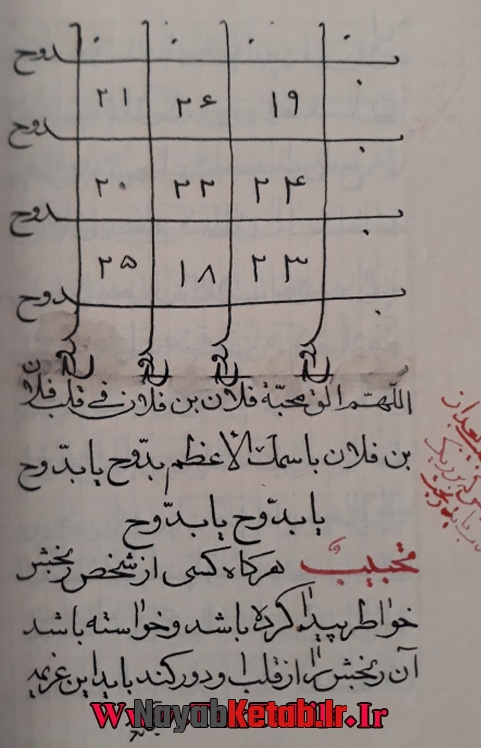 بدوح
۲۱ ۲۶ ۱۹
بدوح
۲۰ ۲۲ ۲۴
بدوح
۲۵ ۱۸ ۲۳
بدوح
اللّهمّ الق محبّة فلان بن فلان في قلب فلان
بن فلان باسمك الأعظم بدّوح یا بدّوح
یا بدّوح یا بدّوح
تحبیب هرگاه کسی از شخص رنجش
خواطر پیدا کرده باشد و خواسته باشد
آن رنجش را از قلب او دور کند باید این عزیمه
NayabKetab.Ir